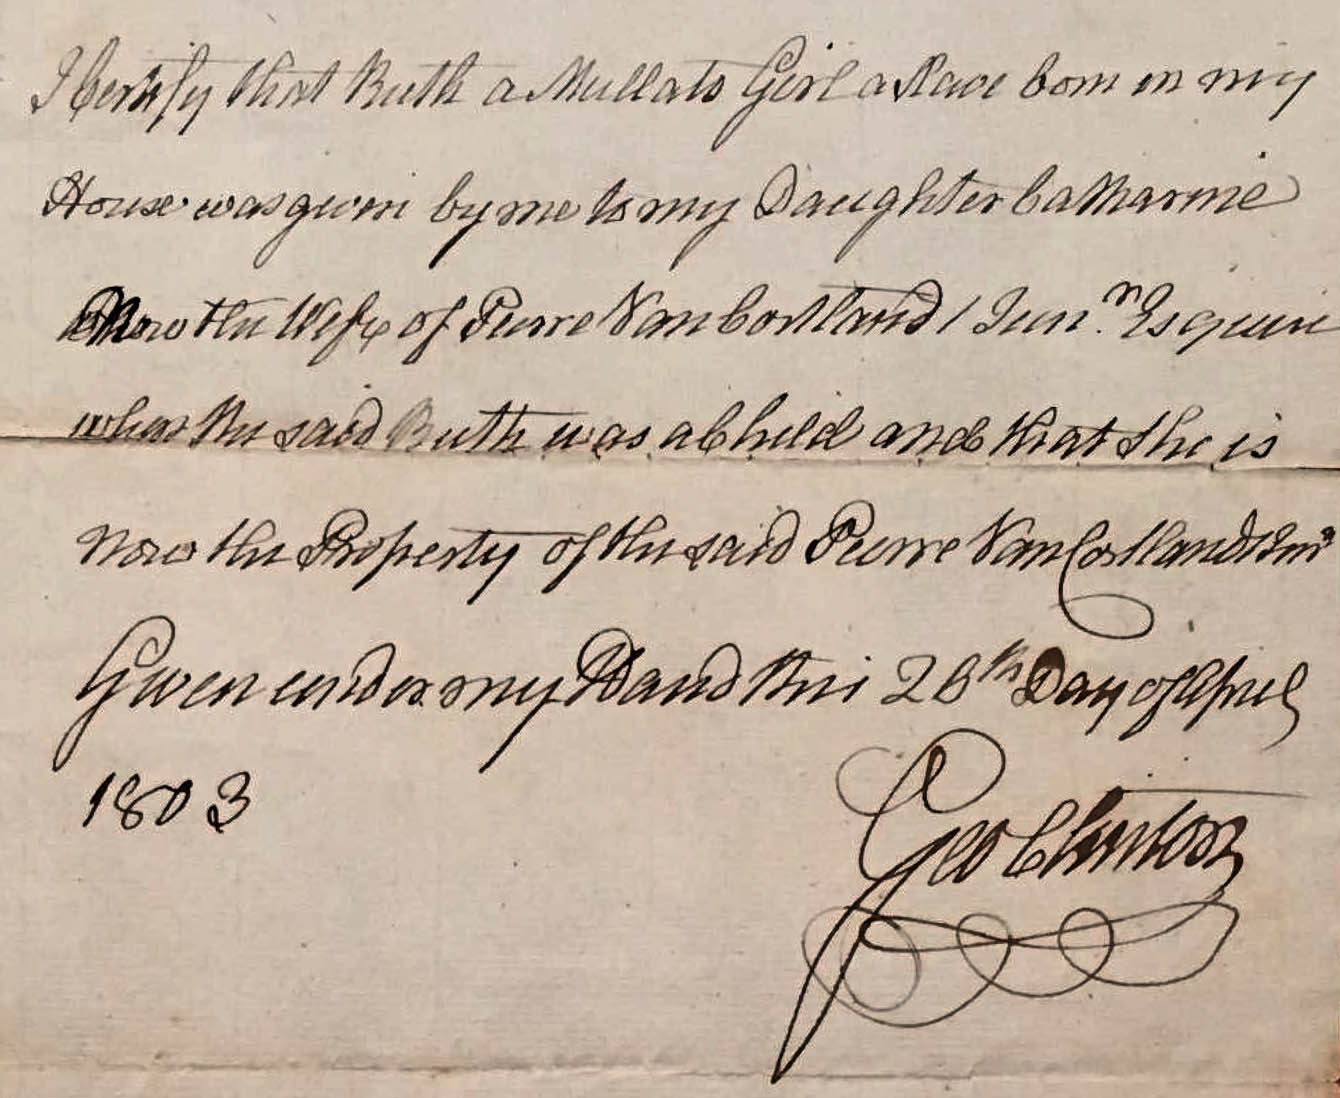 I Certify that Ruth a Mullato Girl a Slave born in my
House was given by me to my Daughter Catharine
Now the Wife of Pierre Van Cortlandt Junr. Esquire
when the said Ruth was a Child and that she is
now the Property of the said Pierre Van Cortlandt Junr
Given under my Hand this 26th Day of April
1803
Geo Clinton